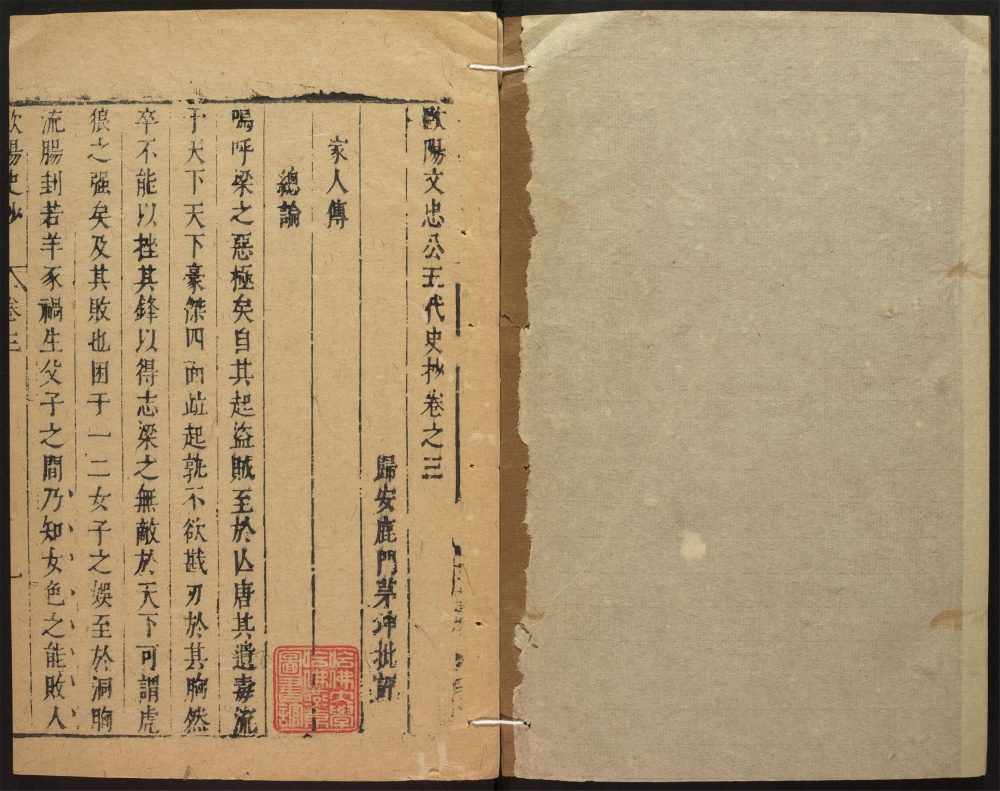 歐陽文忠公五代史抄卷之三
歸安鹿門茅坤批評
家人傳
總論
嗚呼梁之惡極矣自其起盜賊至於亡唐其遺毒流
于天下天下豪傑四面並起孰不欲戡刃於其胸然
卒不能以挫其鋒以得志梁之無敵於天下可謂虎
狼之强矣及其敗也困于一二女子之娛至於洞胸
流腸刲若羊豕禍生父子之間乃知女色之能敗人
歐陽史抄 卷三
哈佛大學哈佛燕京圖書館